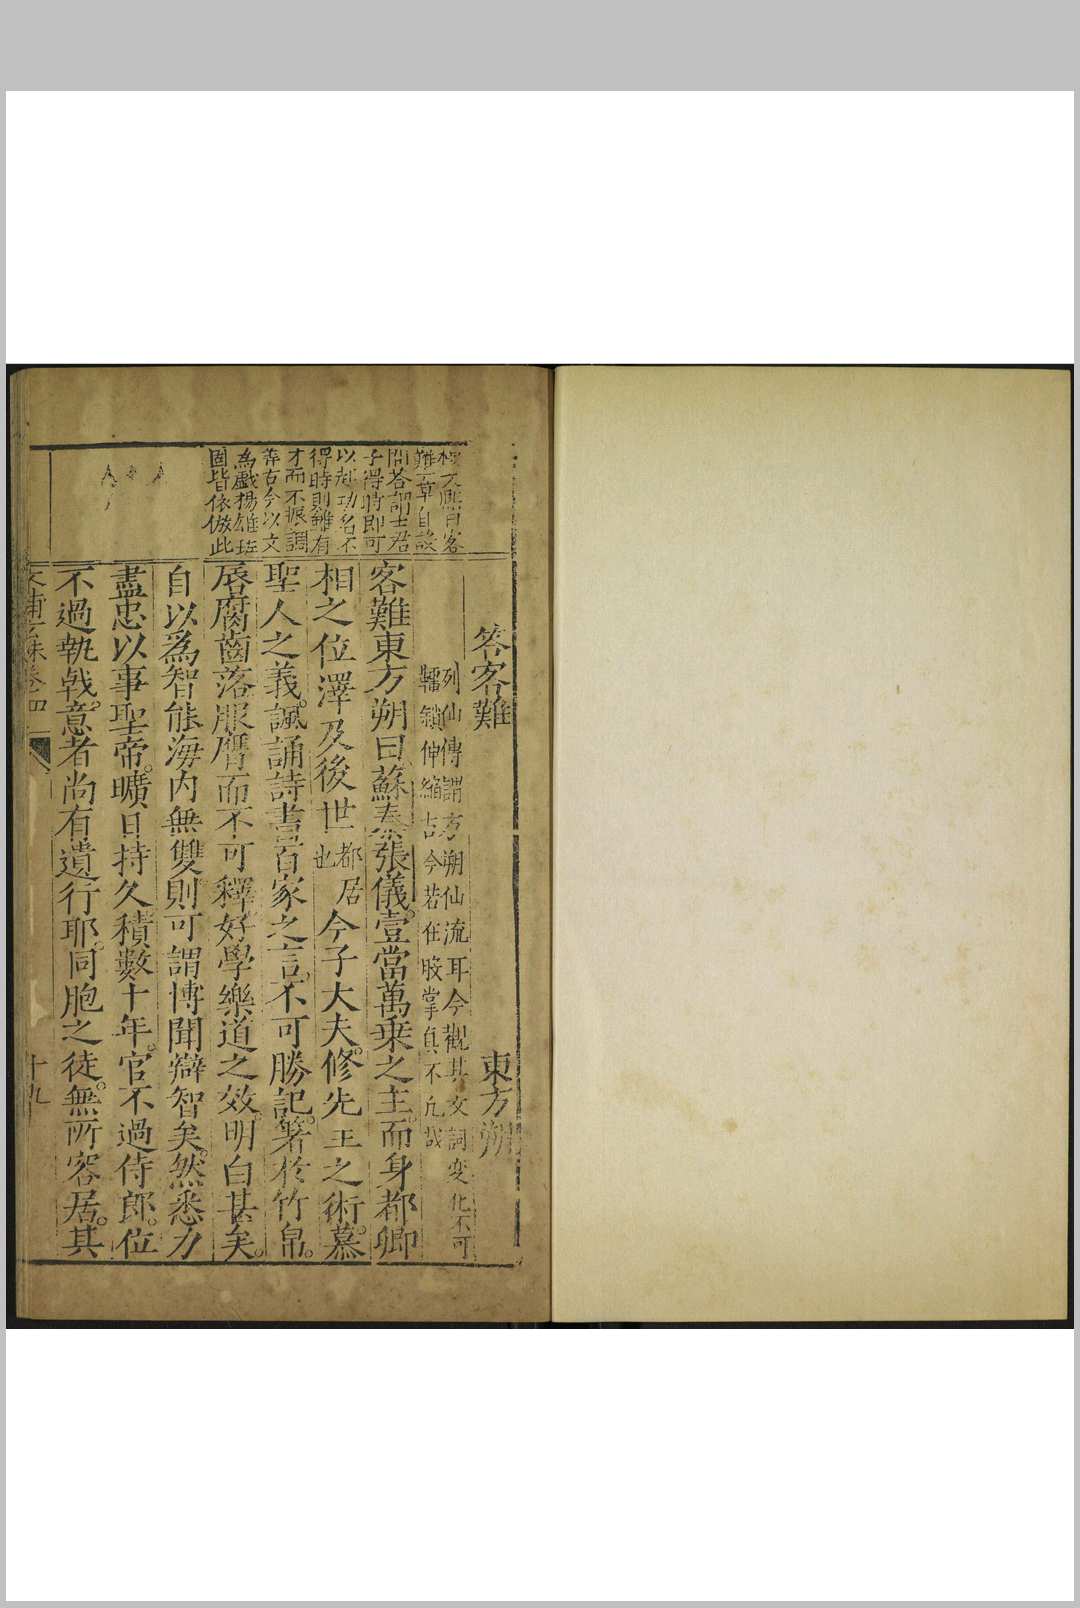 天熙曰客
難一章自設
問答謂士君
子得時即可
以起功名不
得時則雖有
才而不振調
弄古今以文
為戲揚雄班
固皆依倣此
答客難 東方朔
列仙傳謂方朔仙流耳今觀其文詞變化不可
韁鎖伸縮古今若在股掌真不凡哉
客難東方朔曰蘇秦張儀壹當萬乗之主而身都卿
相之位澤及後世都居也今子大夫修先王之術慕
聖人之義諷誦詩書百家之言不可勝記著於竹帛
唇腐齒落服膺而不可釋好學樂道之效明白甚矣
自以爲智能海内無雙則可謂博聞辯智矣然悉力
盡忠以事聖帝曠日持久積數十年官不過侍郎位
不過執戟意者尚有遺行耶同胞之徒無所容居其
卷四
十九